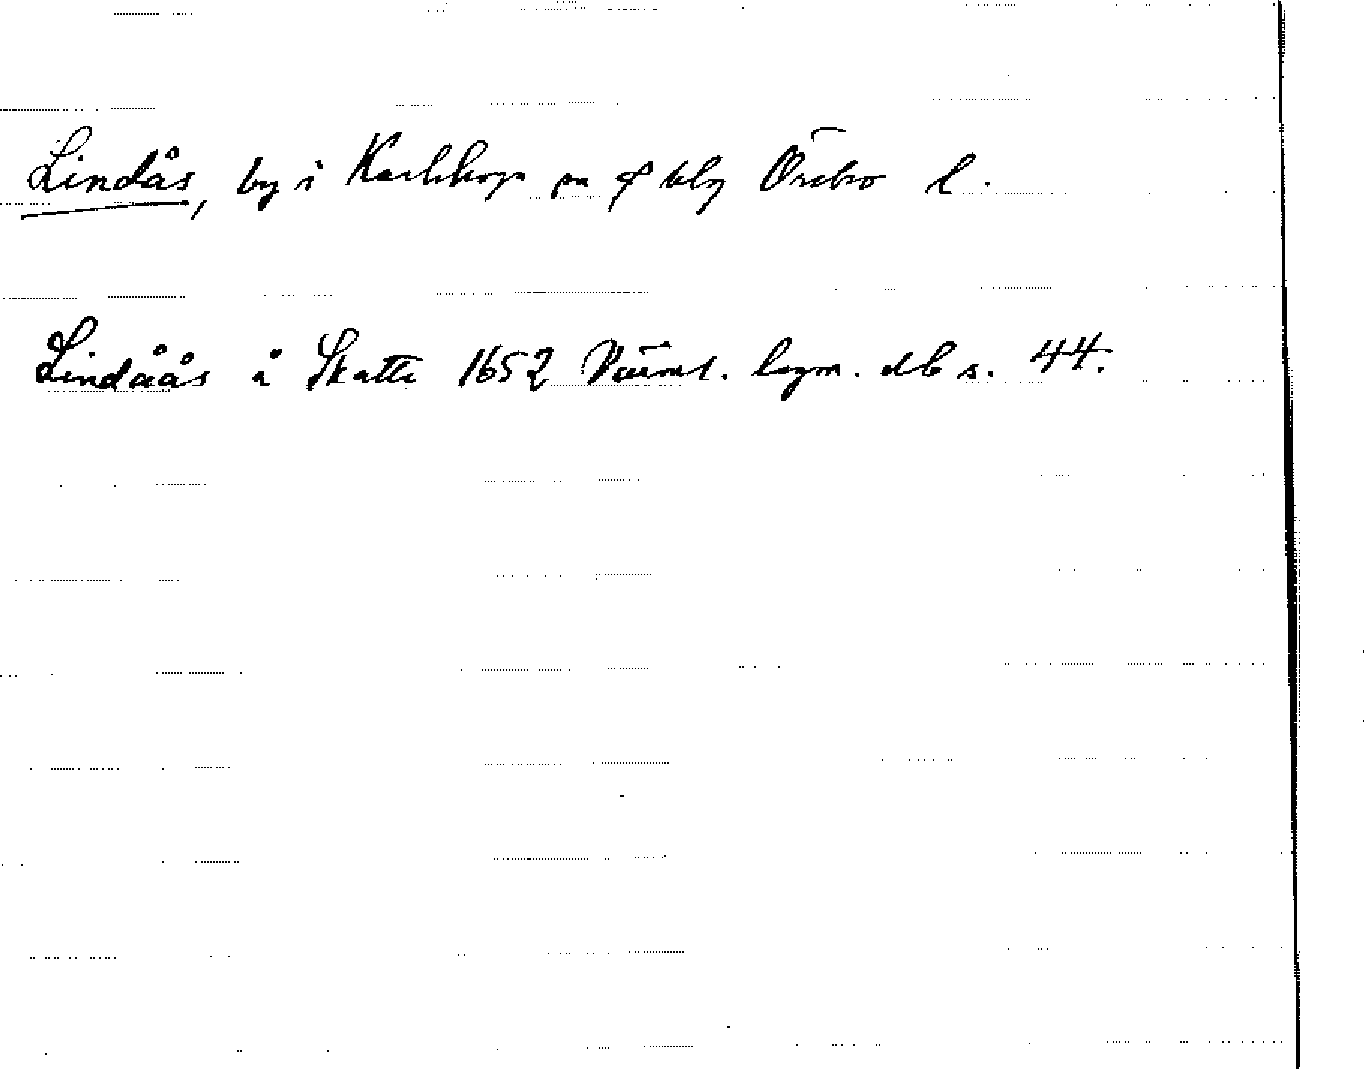 Lindås, by i Karlskoga sn o blg Örebro l.
Lindåås å Skatte 1652 Värml. lagm. db s. 44.